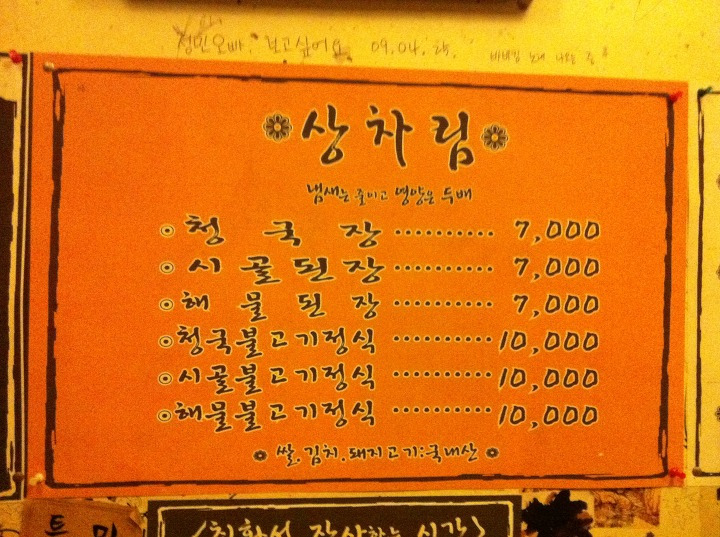 정민오빠. 보고싶어요 09.04.
상차림
냄새는 줄이고 영양은 두배
청국장 7,000
시골된장 7,000
해물된장 7,000
청국불고기정식 10,000
시골불고기정식 10,000
해물불고기정식 10,000
쌀.김치.돼지고기:국내산